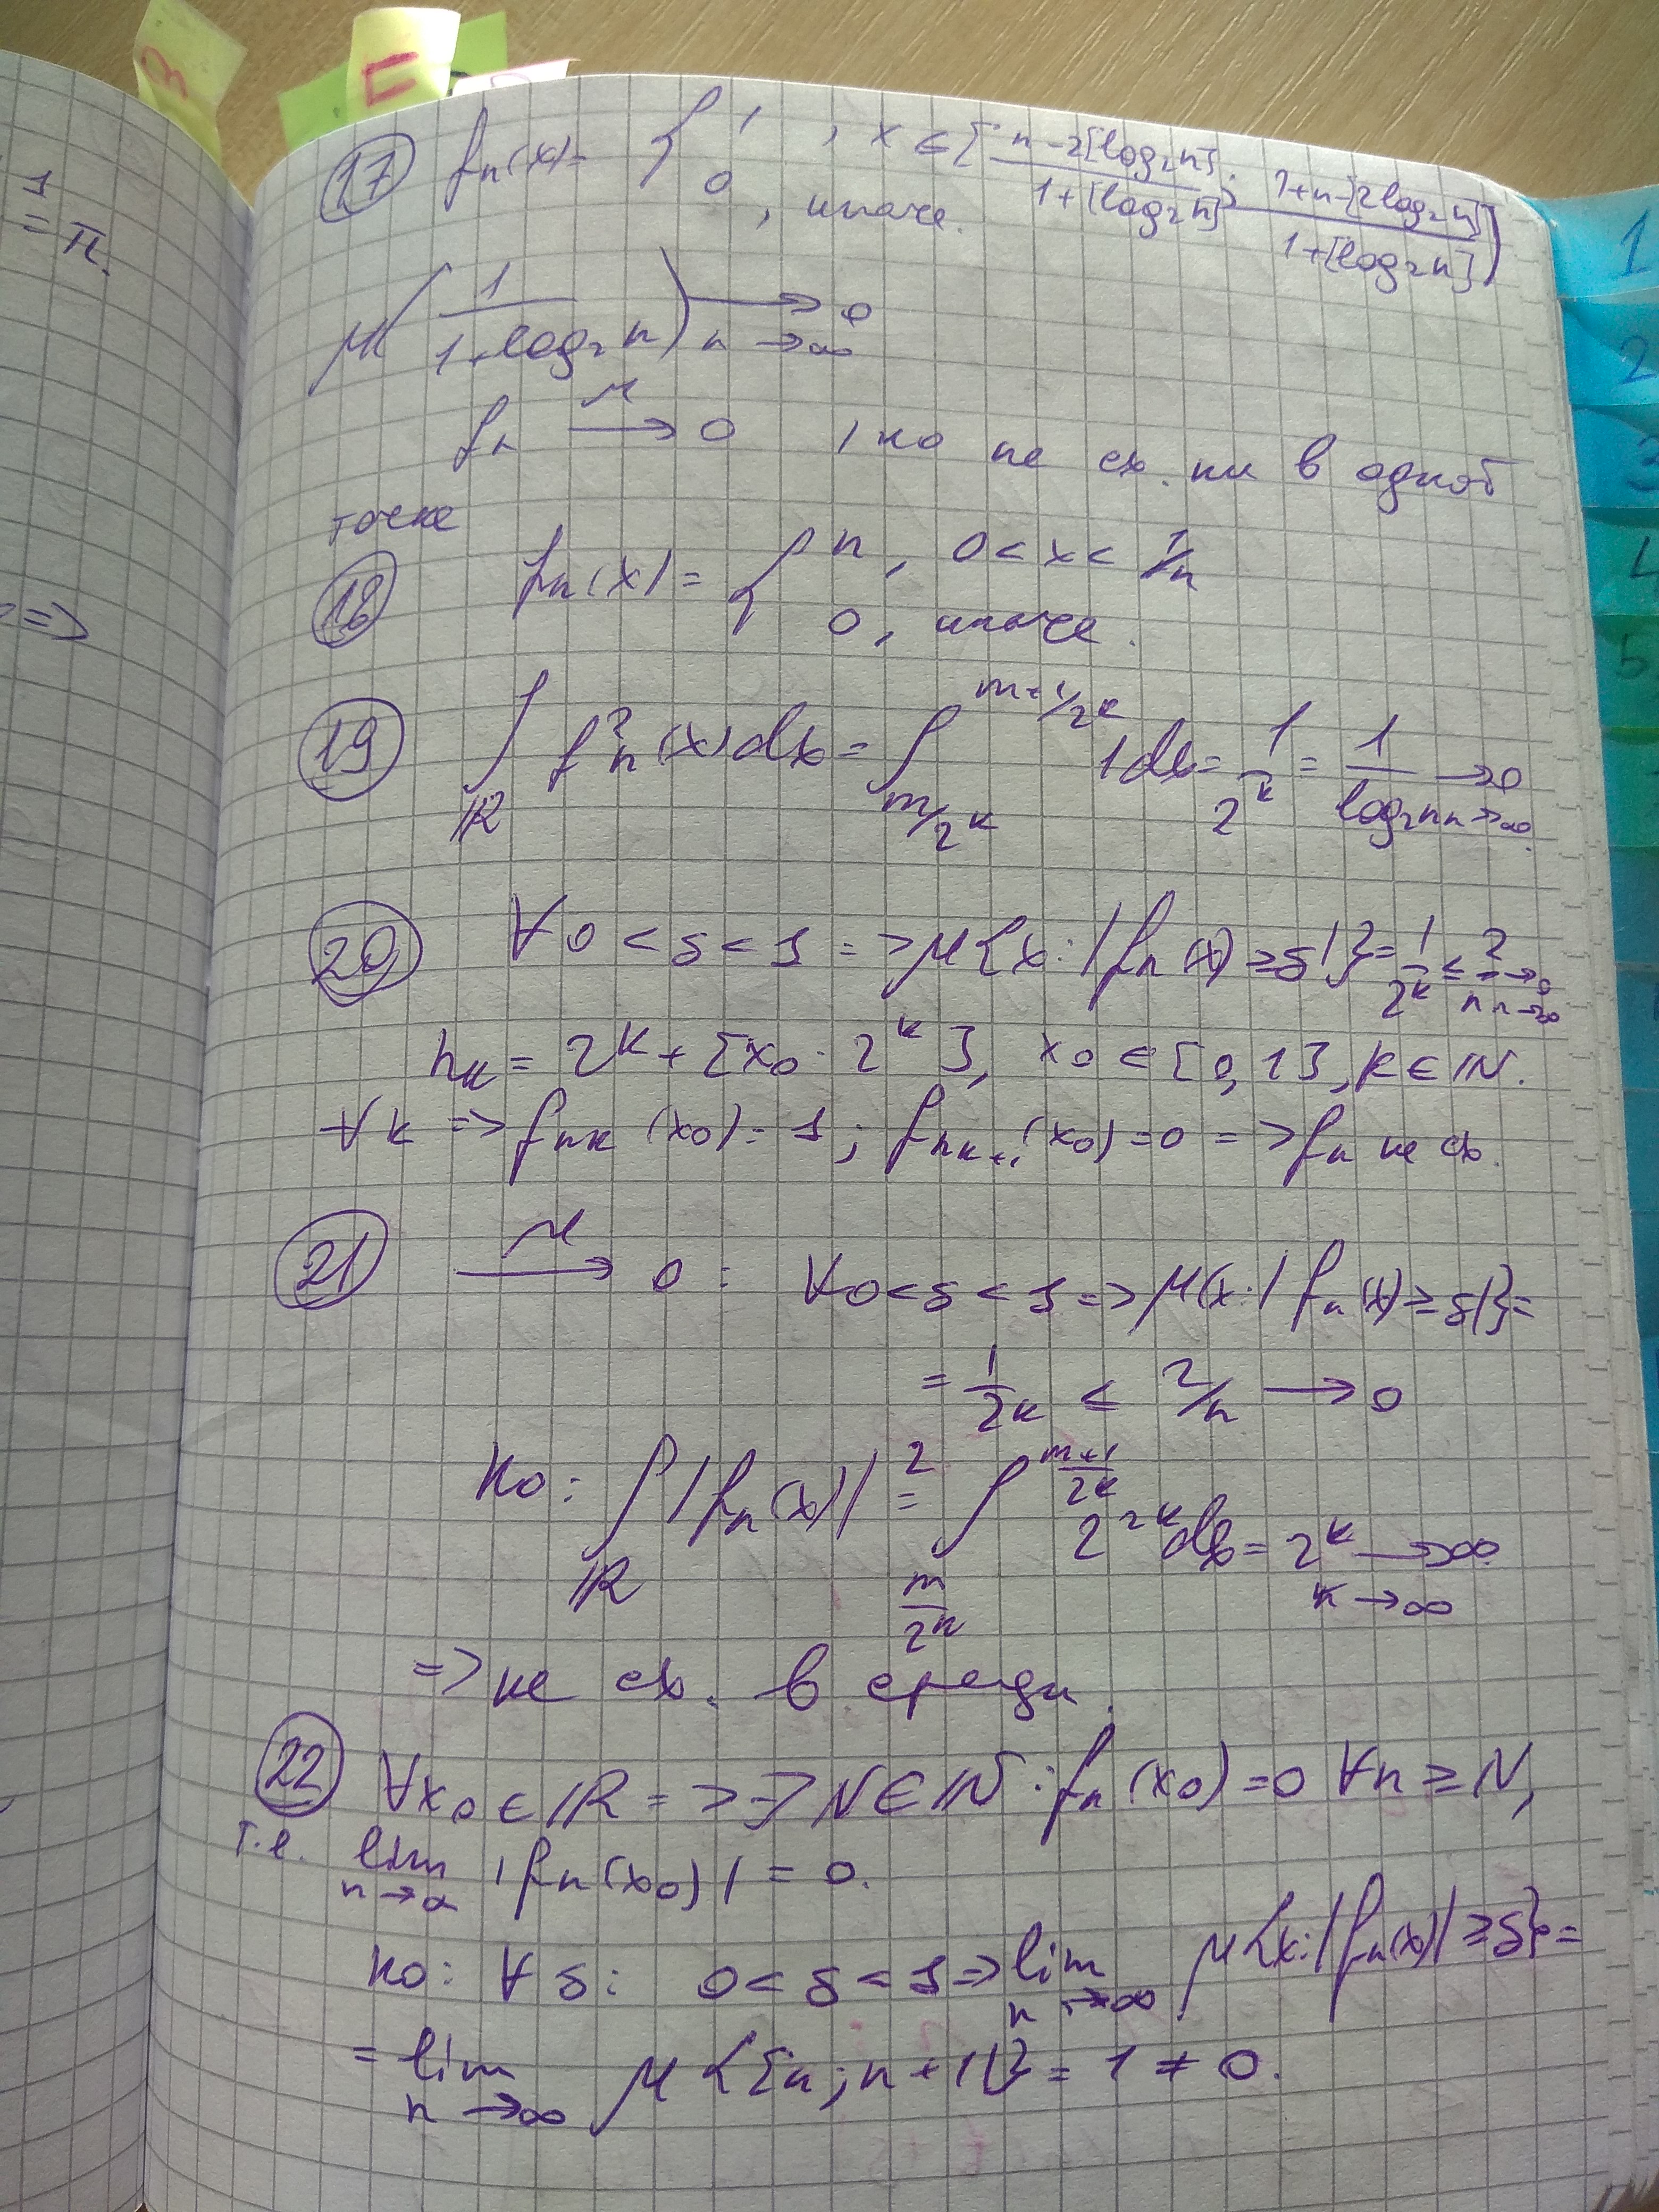 З
П
1
= π.
=>
1
2
3
4
5
(17) fₙ(x) = { 1 , x ∈ [ (n-2[log₂n]) / (1+[log₂n]) ; (1+n-[2log₂n]) / (1+[log₂n]) )
0 , иначе.
μ( 1 / (1+log₂n) ) → 0 n→∞
fₙ →^μ 0 , но не сх. ни в одной
точке
(18) fₙ(x) = { n, 0 < x < 1/n
0, иначе.
(19) ∫_ℝ fₙ²(x)dx = ∫_{m/2^k}^{m+1/2^k} 1dx = 1/2^k = 1/log₂n → 0 n→∞.
(20) ∀ 0 < δ < 1 => μ{x: |fₙ(x) ≥ δ|} = 1/2^k ≤ 2/n → 0 n→∞
n_k = 2^k + [x₀ · 2^k], x₀ ∈ [0,1], k ∈ ℕ.
∀k => f_{n_k}(x₀) = 1; f_{n_k+1}(x₀) = 0 => fₙ не сх.
(21) →^μ 0 : ∀ 0 < δ < 1 => μ{x: |fₙ(x) ≥ δ|} =
= 1/2^k ≤ 2/n → 0
но: ∫_ℝ |fₙ(x)|² = ∫_{m/2^k}^{(m+1)/2^k} 2^{2k} dx = 2^k → ∞ k→∞
=> не сх. в средн.
(22) ∀x₀ ∈ ℝ => ∃ N ∈ ℕ : fₙ(x₀) = 0 ∀n ≥ N,
т.е. lim_{n→∞} |fₙ(x₀)| = 0.
но: ∀ δ: 0 < δ < 1 => lim_{n→∞} μ{x: |fₙ(x)| ≥ δ} =
= lim_{n→∞} μ{[n; n+1]} = 1 ≠ 0.